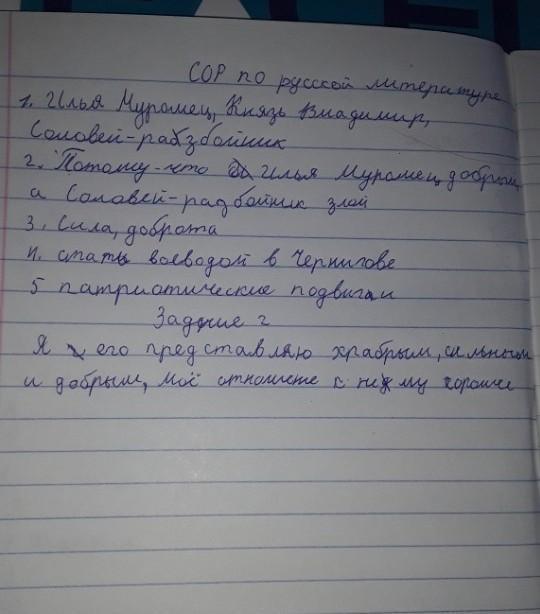 СОР по русской литературе
1. Илья Муромец, Князь Владимир,
Соловей-рабзбойник
2. Потому-что Илья Муромец добрый,
а Соловей-радбойник злой
3. Сила, доброта
4. стать воеводой в Чернигове
5 патриотические подвиги
Задние 2
Я его представляю храбрым, сильным
и добрым, моё отношете к нему хороше